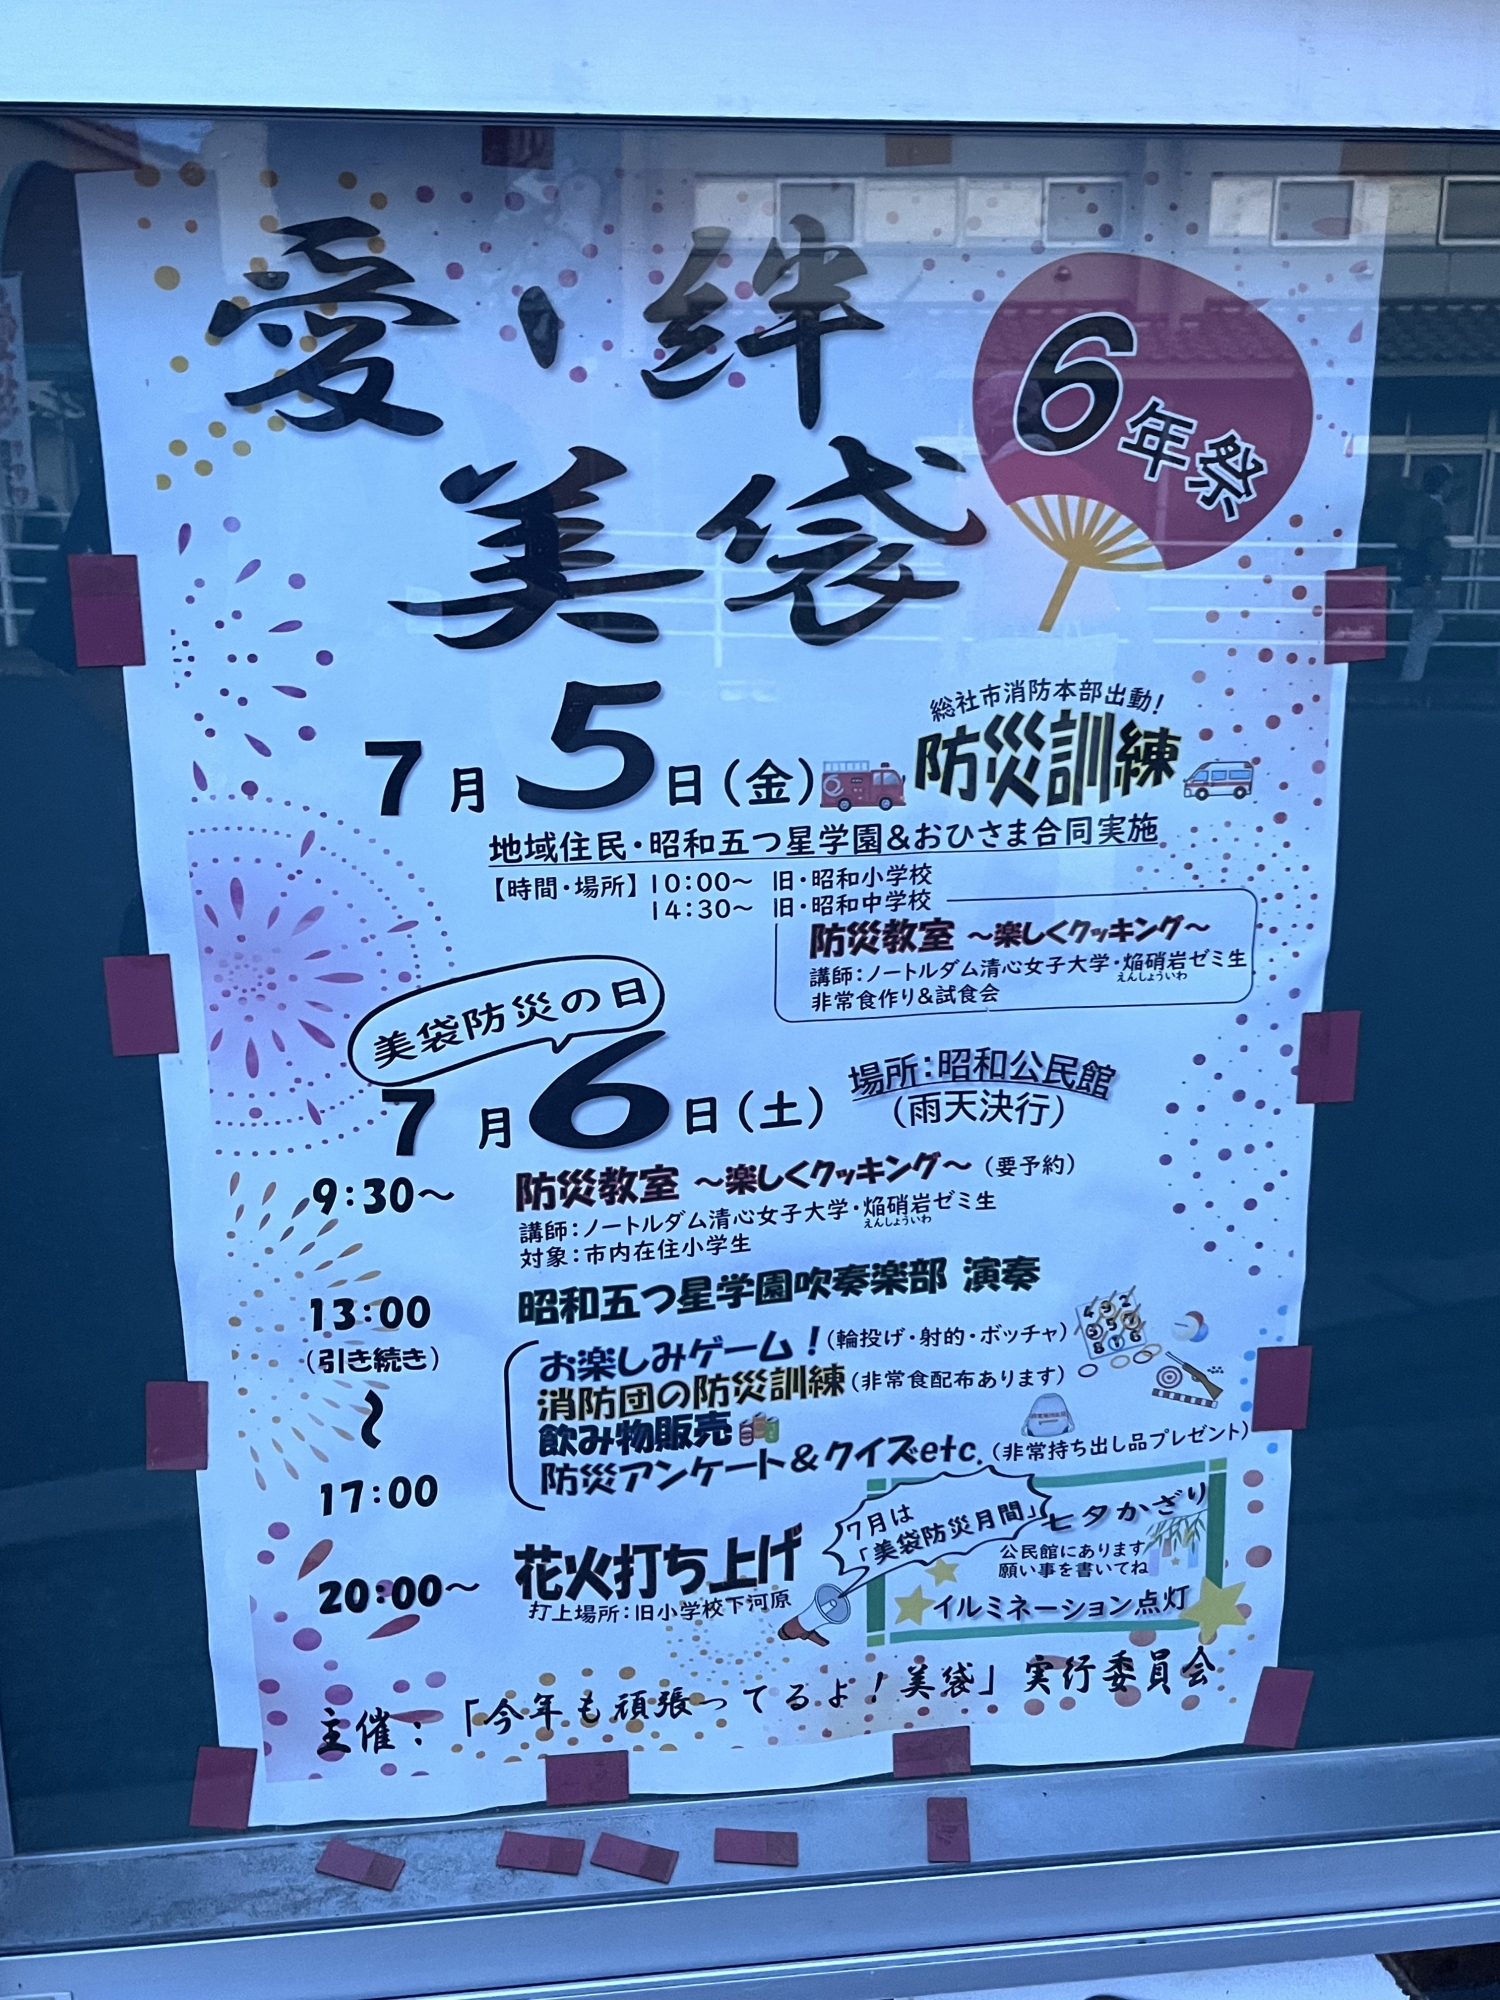 愛、絆
美袋
6年祭
総社市消防本部出動！
7月5日（金）防災訓練
地域住民・昭和五つ星学園＆おひさま合同実施
【時間・場所】10:00～ 旧・昭和小学校
14:30～ 旧・昭和中学校
防災教室 ～楽しくクッキング～
講師：ノートルダム清心女子大学・焔硝岩ゼミ生
えんしょういわ
非常食作り＆試食会
美袋防災の日
7月6日（土）
場所：昭和公民館
（雨天決行）
9:30～ 防災教室 ～楽しくクッキング～（要予約）
講師：ノートルダム清心女子大学・焔硝岩ゼミ生
えんしょういわ
対象：市内在住小学生
13:00 昭和五つ星学園吹奏楽部 演奏
（引き続き）
～
17:00
お楽しみゲーム！（輪投げ・射的・ボッチャ）
消防団の防災訓練（非常食配布あります）
飲み物販売
防災アンケート＆クイズetc.（非常持ち出し品プレゼント）
20:00～ 花火打ち上げ
打上場所：旧小学校下河原
7月は
「美袋防災月間」
七夕かざり
公民館にあります
願い事を書いてね
イルミネーション点灯
主催：「今年も頑張ってるよ！美袋」実行委員会